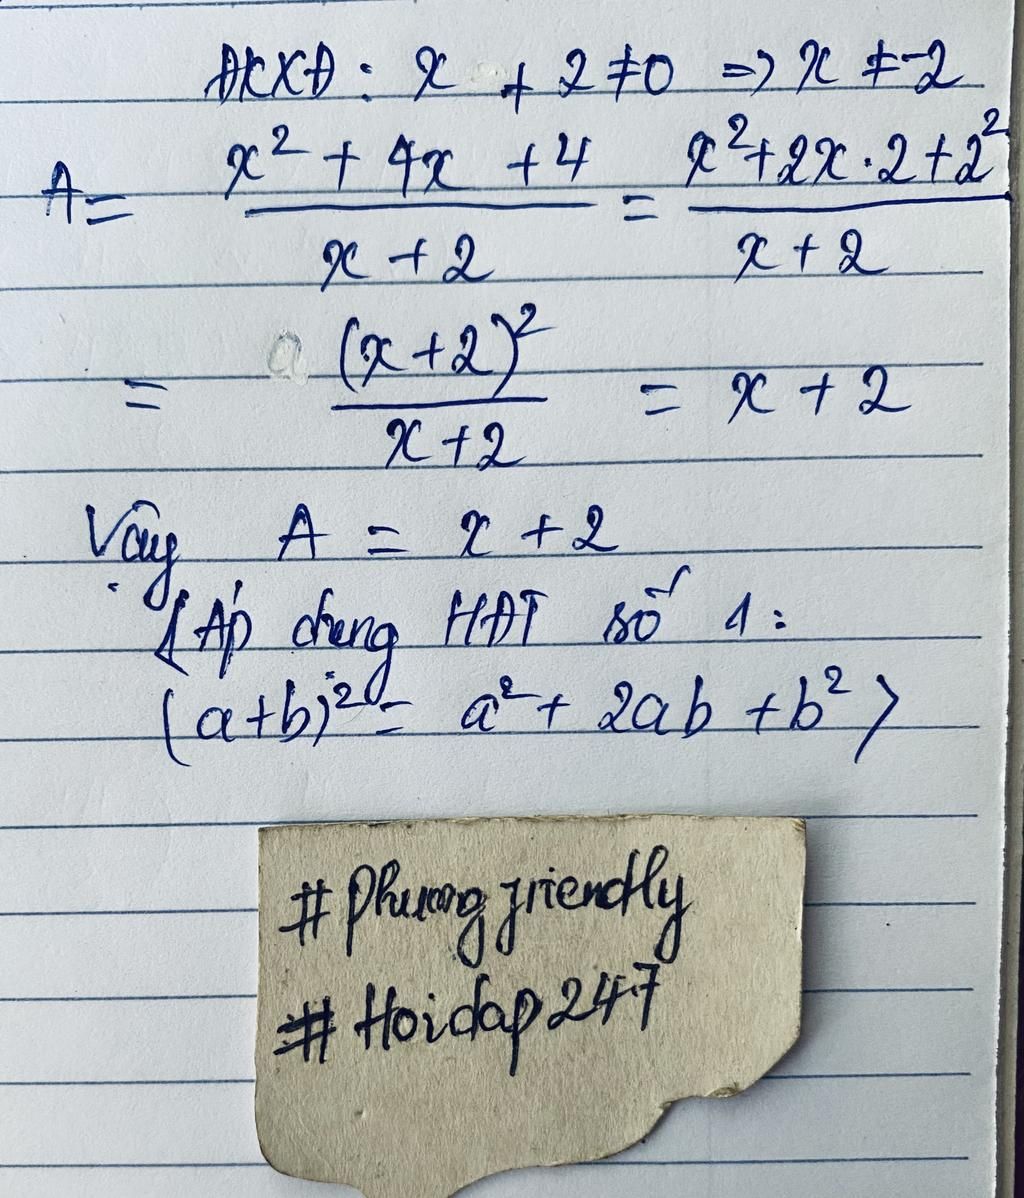 ĐKXĐ: x + 2 ≠ 0 => x ≠ -2
A = (x² + 4x + 4)/(x + 2) = (x² + 2x · 2 + 2²)/(x + 2)
= (x + 2)²/(x + 2) = x + 2
Vậy A = x + 2
{Áp dụng HĐT số 1:
(a+b)² = a² + 2ab + b²>
# Phuong friendly
# Hoidap247